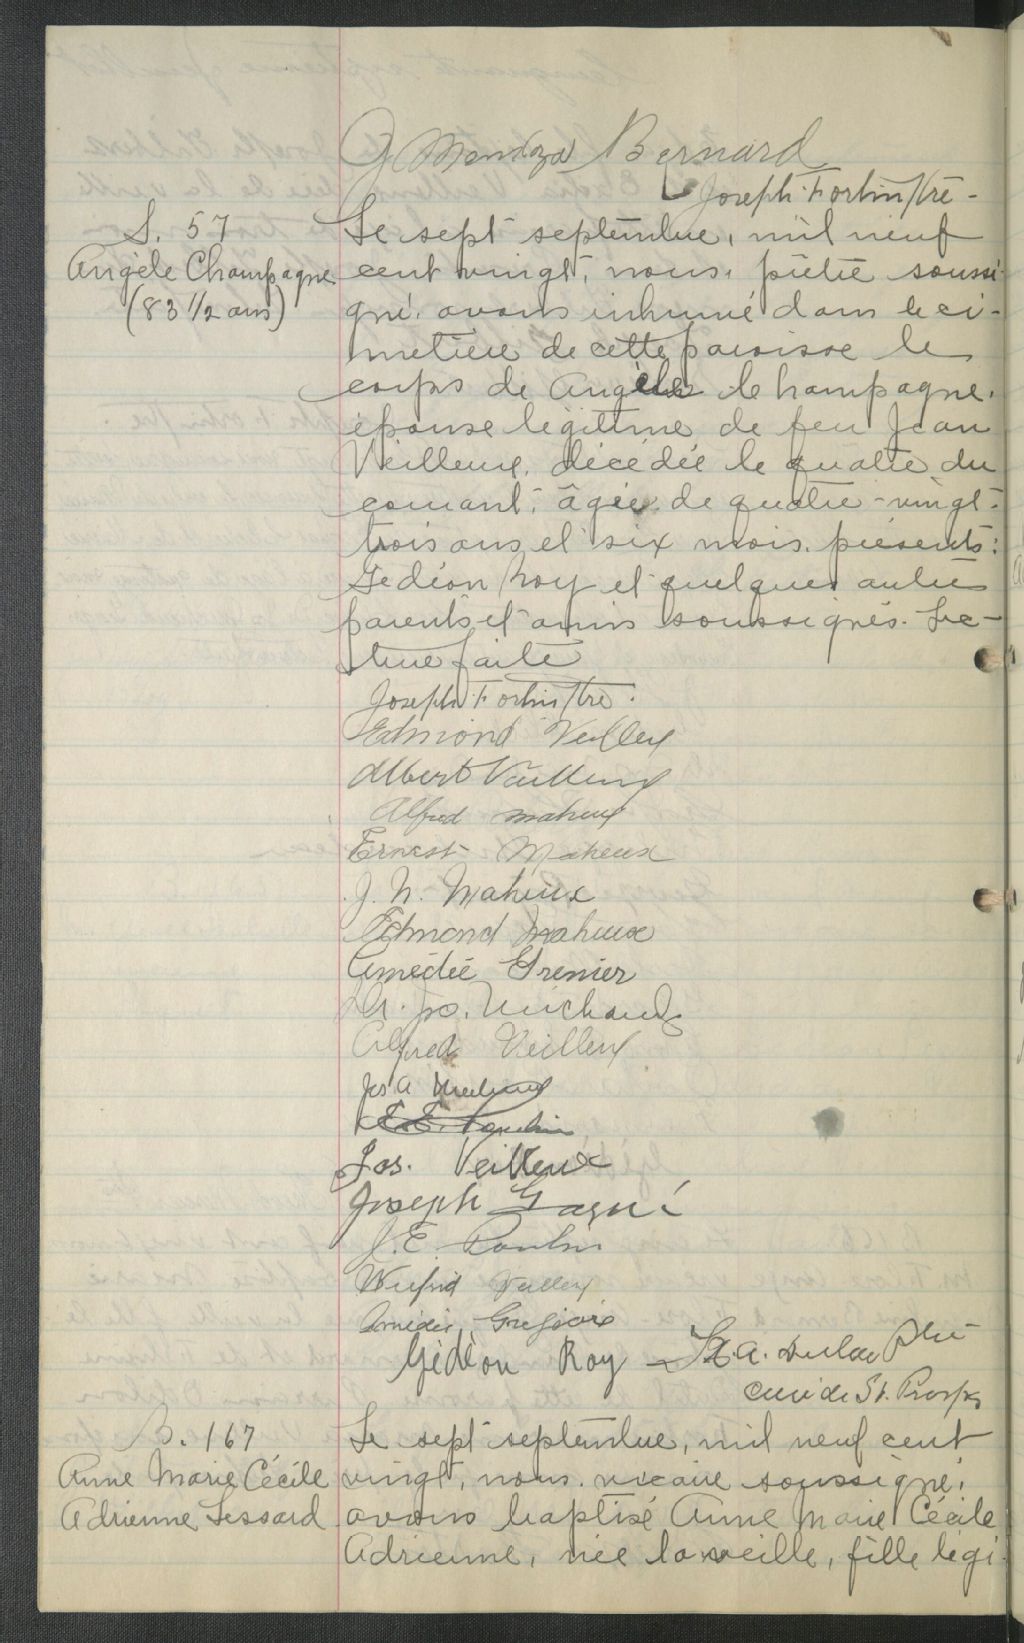 J Mendoza Bernard
Joseph Fortin Ptre -
S. 57
Angèle Champagne
(83 1/2 ans)
Le sept septembre, mil neuf
cent vingt, nous, prêtre soussi-
gné, avons inhumé dans le ci-
metière de cette paroisse le
corps de Angèle Champagne,
épouse légitime de feu Jean
Veilleux, décédée le quatre du
courant, âgée de quatre-vingt-
trois ans et six mois. présents:
Gédéon Roy et quelques autres
parents et amis soussignés. Lec-
ture faite
Joseph Fortin Ptre.
Edmond Veilleux
Albert Veilleux
Alfred Maheux
Ernest Maheux
J. N. Maheux
Edmond Maheux
Amédée Grenier
Jos. Michaud
Alfred Veilleux
Jos A
E. Poulin
Jos. Veilleux
Joseph Gagné
J. E. Poulin
Wilfrid Veilleux
Amédée Grégoire
Gédéon Roy
A. Dulac Ptre
curé de St. Prosper
B. 167
Anne Marie Cécile
Adrienne Lessard
Le sept septembre, mil neuf cent
vingt, nous, vicaire soussigné,
avons baptisé Anne Marie Cécile
Adrienne, née la veille, fille légi-